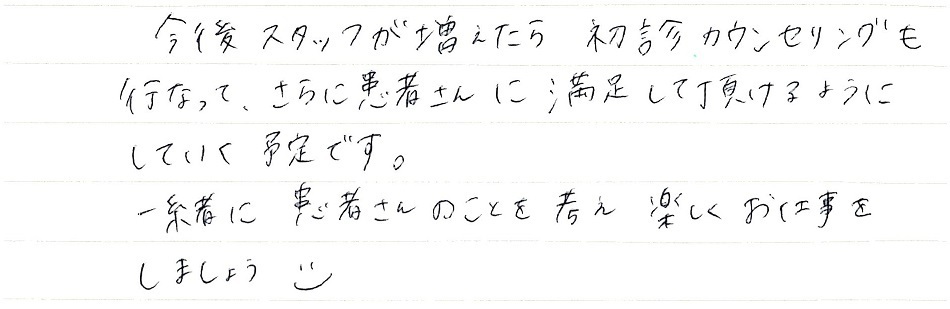 今後スタッフが増えたら 初診カウンセリングも
行なって、さらに患者さんに満足して頂けるように
していく予定です。
一緒に 患者さんのことを考え 楽しくお仕事を
しましょう